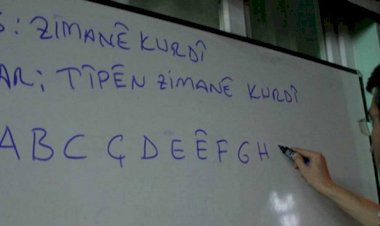 : ZIMANÊ KURDÎ
AR: TÎPÊN ZIMANÊ KURDÎ
A B C Ç D E Ê F G H